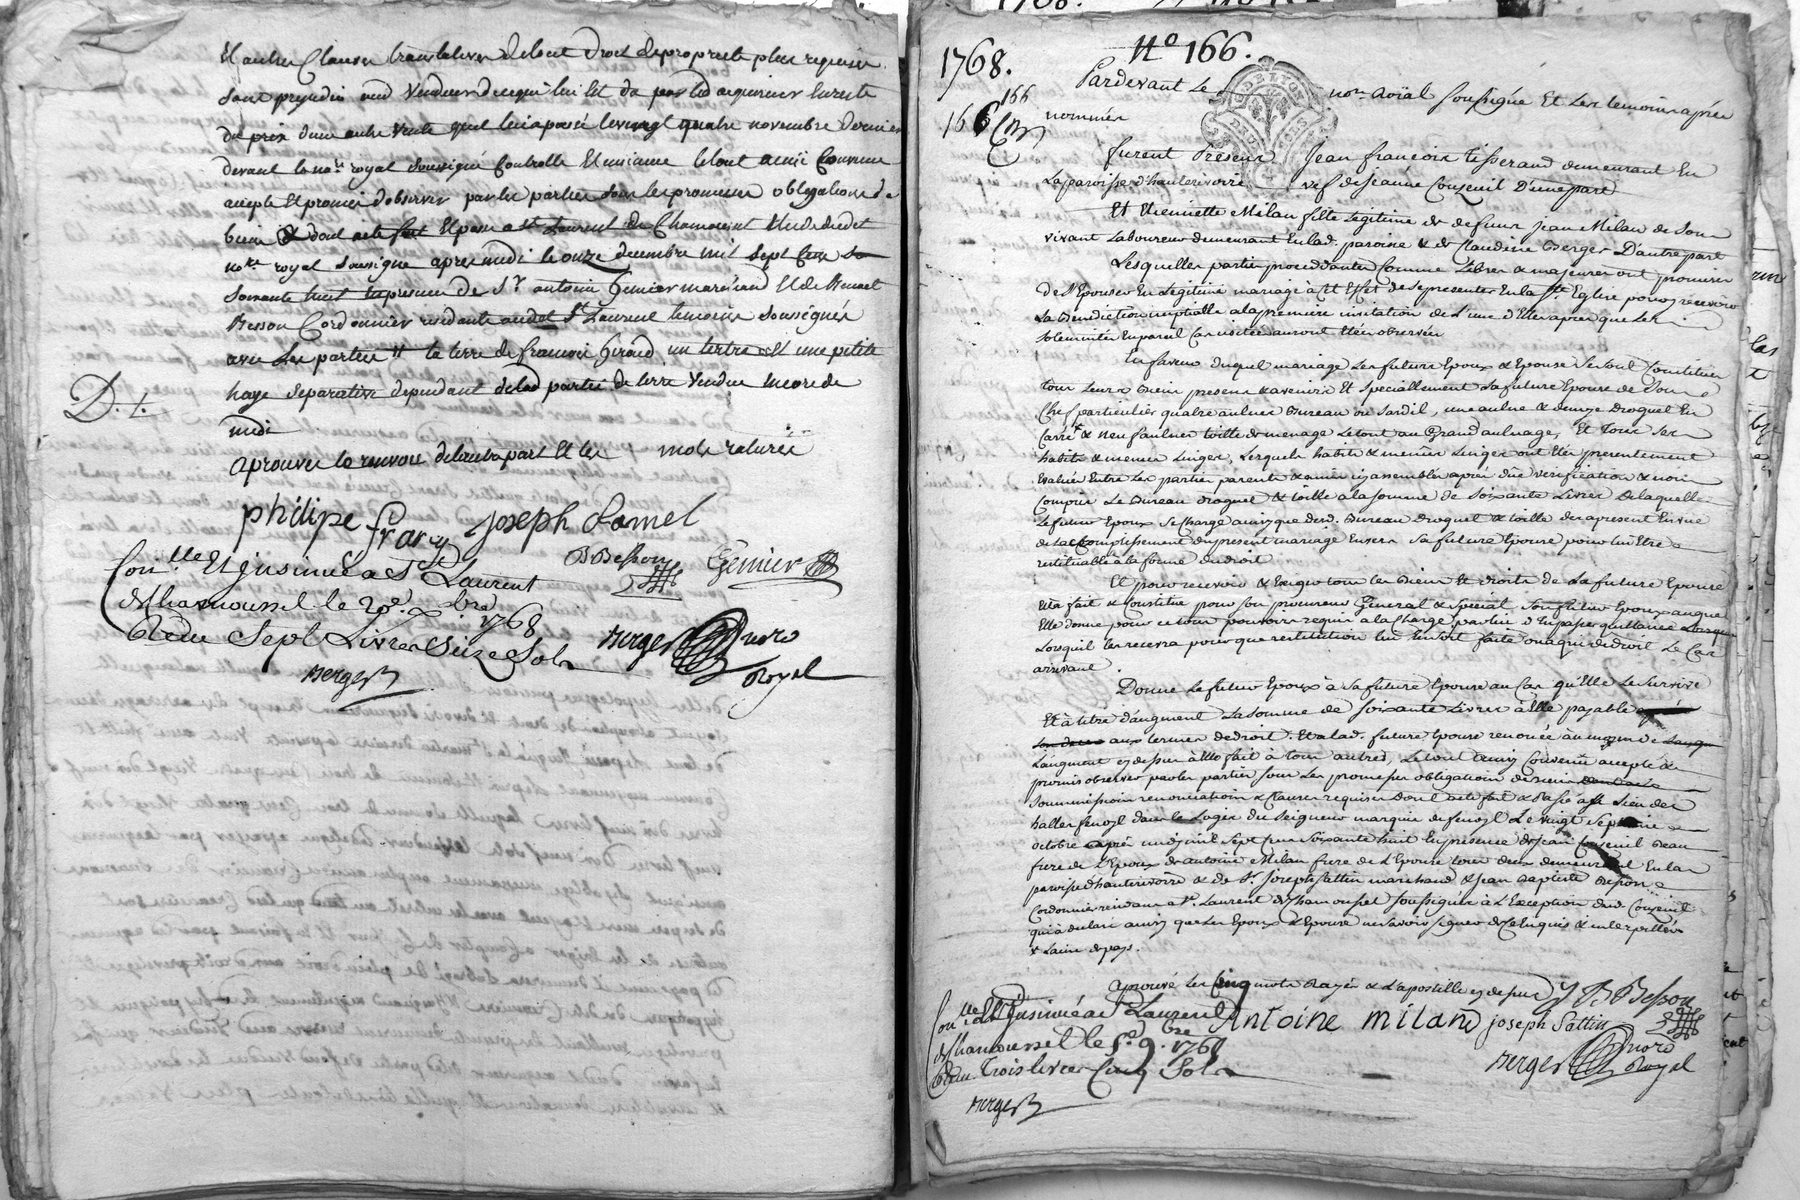 Et autres Clauses translatives de tout droit de propriété plus requises
sans prejudice aud vendeur de ce qui lui est dû par led acquereur en reste
du prix d'une autre vente quil lui a passé le vingt quatre novembre dernier
devant le no.re royal soussigné Controllé Et insinué le tout ainsi Convenu
accepté Et promis d'observer par les parties sous les promesses obligations de
biens & dont acte fait Et passé a St Laurent de Chamousset Etude dudit
no.re royal soussigné apres midi le onze decembre mil sept Cent so
soixante huit En presence de Sr antoine Gemier marchand Et de
Besson Cordonnier residants audit St Laurent temoins soussignés
avec Les parties Et la terre de francois Giraud un tertre Et une petite
haye separative dependant de lad partie de terre vendue
midi
D. t.
aprouvés le renvoi de l'autre part Et les mots raturés
philipe frary joseph Comel
BBesson Gemier
Con.lle Et insinué a St Laurent
de Chamousset le 20e Xbre 1768
Reçu Sept Livres Seize Sols
Berger
Berger nore
Royal
1768. No 166.
166
166
Pardevant Le nore Roïal soussigné Et Les temoins après
nommés
furent Presens Jean francois tisserand demeurant En
La paroisse d'hauterivoire vef de jeanne Couzeuil D'une part
Et Etiennette Milan fille Legitime de defunt jean Milan de son
vivant Laboureur demeurant En lad. paroisse & de Claudine Berger D'autre part
Lesquelles parties procedantes Comme Libres & majeures ont promis
de s'Epouser En Legitime mariage a Cet Effet de se presenter En la Ste Eglise pour y recevoir
La Benediction nuptialle a la premiere invitation de L'une d'Elles apres que Les
solemnités En pareil Cas usitées auront Etés observées
En faveur duquel mariage Les futurs Epoux & Epouse se sont Constitués
tous Leurs Biens presens & avenirs Et speciallement La future Epouse de son
Chef particulier quatre aulnes Bureau ou sardil, une aulne & demye Droguet En
Carré & neuf aulnes toille de menage Le tout au Grand aulnage, Et Tous ses
habits & menus Linges, Lesquels habits & menus Linges ont Etés presentement
Evalués Entre Les parties parents & amis icy assemblés après düe verification & non
Compris Le Bureau droguet & toille a la somme de soixante Livres De laquelle
Le futur Epoux se Charge ainsy que desd. Bureau droguet & toille des apresent En vue
de L'accomplissement du present mariage Envers sa future Epouse pour lui Etre
restituable a la forme du droit
Et pour recevoir & Exiger tous les Biens Et droits de La future Epouse
Elle fait & Constitue pour son procureur General & special, son futur Epoux auquel
Elle donne pour ce tout pouvoir requis a la Charge par lui d'En passer quittance
Lorsquil les recevra pour que restitution lui En soit faite ou a qui de droit Le Cas
arrivant.
Donne Le futur Epoux à sa future Epouse au Cas qu'Elle Le survive
Et à titre d'augment La somme de soixante Livres à Elle payable
aux termes de droit. Et a lad. future Epouse renoncé au moyen de
L'augment cy dessus à Elle fait à tous autres, Le tout ainsy Convenu accepté &
promis observer par les parties sous Les promesses obligations de biens
soummissions renonciations & Clauses requises Dont acte fait & Passé au Lieu des
halles fenoyl dans le Logis du seigneur marquis de fenoyl Le vingt
octobre après midy mil sept Cent soixante huit En presence de jean Couzeuil Beau
frere de L'Epoux de antoine Milan frere de L'Epouse tous deux demeurants En la
paroisse d'hauterivoire & de Sr joseph sattin marchand & jean Baptiste Besson
Cordonnier residants a St. Laurent de Chamousset soussignés à L'Exception dud. Couzeuil
qui à declaré ainsy que Les Epoux & Epouse ne savoir signer de Ce Enquis & interpellés
aprouvé Les Cinq mots Rayés & L'apostille cy dessus J B Besson
Con.lle Et Insinué a St Laurent
Antoine miland joseph Sattin
de Chamousset le 5e. 9.bre 1768
Reçu Trois livres Cinq Sols
Berger nore
Royal
Berger